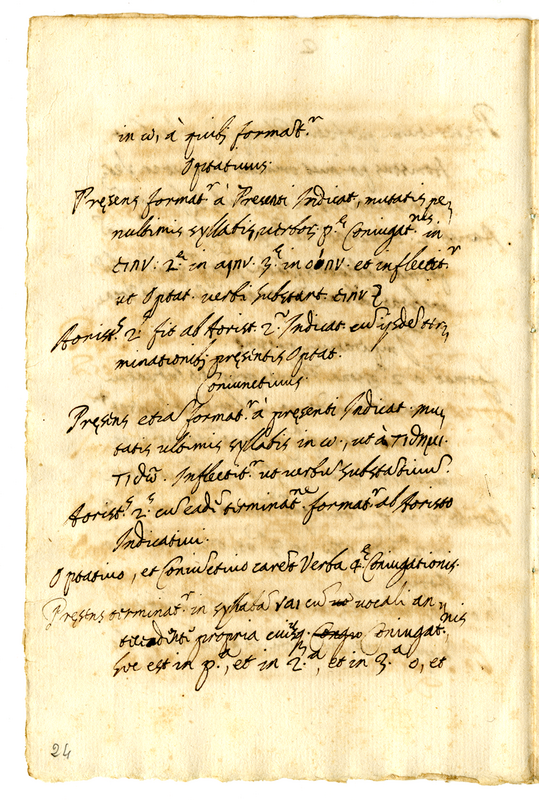 in ω, à quibꝫ formatʳ.
Optativus.
Pręsens formatʳ à Presenti Indicat., mutatis pe,
nultimis syllabis, verbor p.ę Coniugatnis in
ειην. 2.ę in αιην. 3.ę in οιην. et inflectitʳ.
ut Optat. verbi substant. ειην
Aorist.s 2.s fit ab Aorist. 2.° Indicat. cū ijsdē ter,
minationibꝫ pręsentis Optat.
Coniunctivus.
Pręsens etiā formatʳ à pręsenti Indicat. mu,
tatis ultimis syllabis in ω., ut à τιθημι.
τιθω̃. Inflectitʳ ut verbū substātivū.
Aorist.s 2.s cū eadē terminatne formatʳ ab Aoristo
Indicativi.
Optativo, et Coniūctivo carēt Verba 4.ę Coniugationis.
Pręsens terminatʳ in syllabā ναι cū vocali an,
tecedēti propria Coniugatnis
hoc est in p.a, et in 2.a, et in 3.a ο, et
24